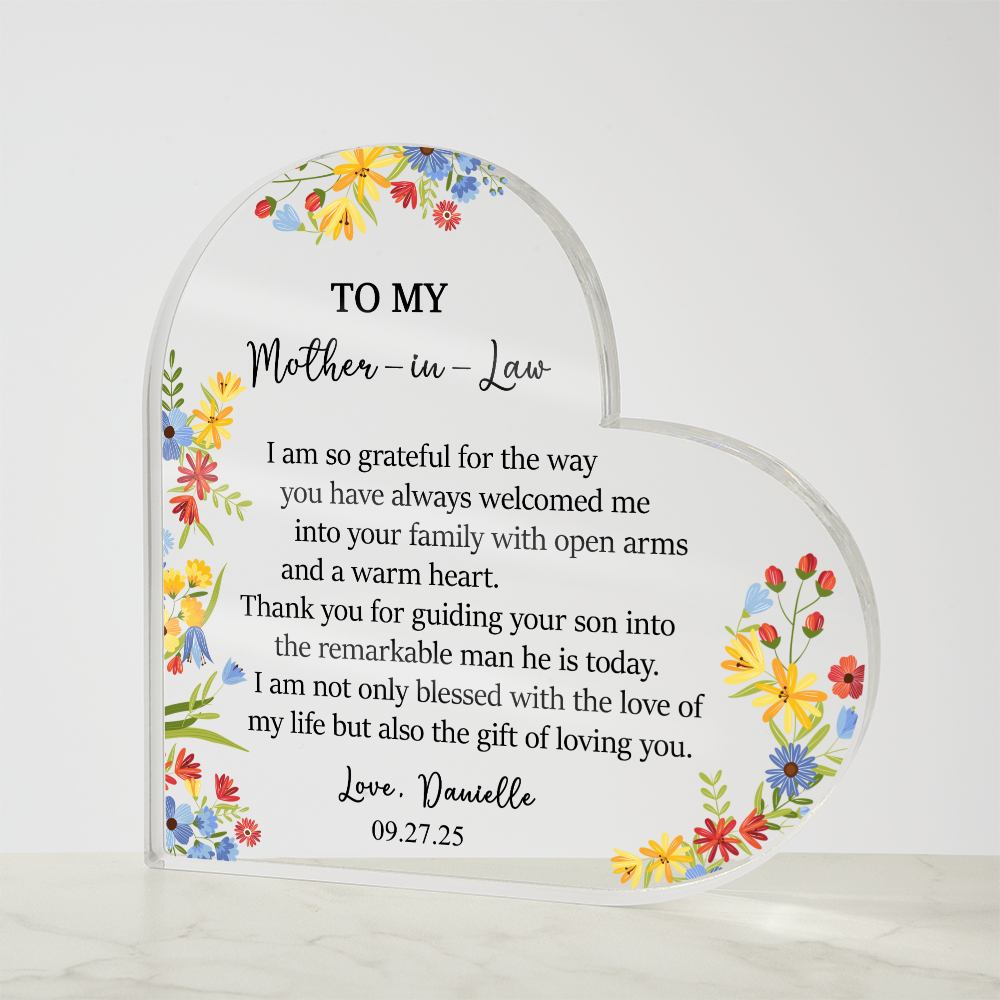 TO MY
Mother-in-Law
I am so grateful for the way
you have always welcomed me
into your family with open arms
and a warm heart.
Thank you for guiding your son into
the remarkable man he is today.
I am not only blessed with the love of
my life but also the gift of loving you.
Love, Danielle
09.27.25